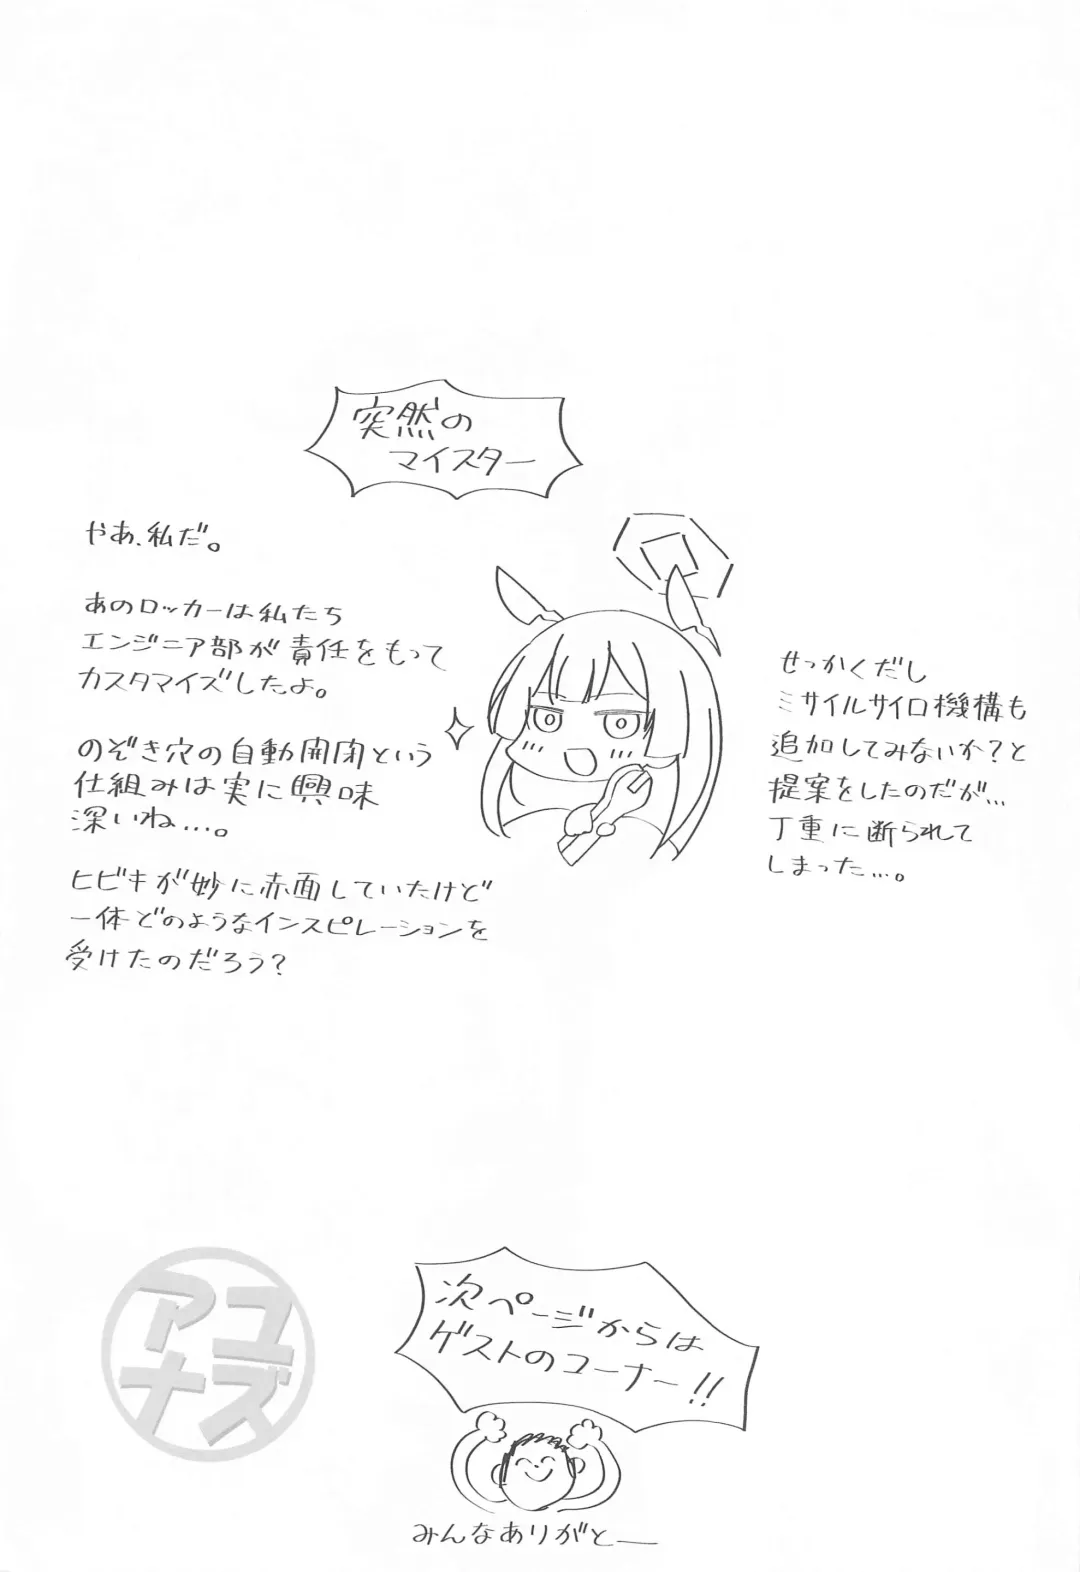 突然の
マイスター
やあ、私だ。
あのロッカーは私たち
エンジニア部が責任をもって
カスタマイズしたよ。
のぞき穴の自動開閉という
仕組みは実に興味
深いね…。
ヒビキが妙に赤面していたけど
一体どのようなインスピレーションを
受けたのだろう?
せっかくだし
ミサイルサイロ機構も
追加してみないか?と
提案をしたのだが…
丁重に断られて
しまった…。
ユズ
アナ
次ページからは
ゲストのコーナー!!
みんなありがとー